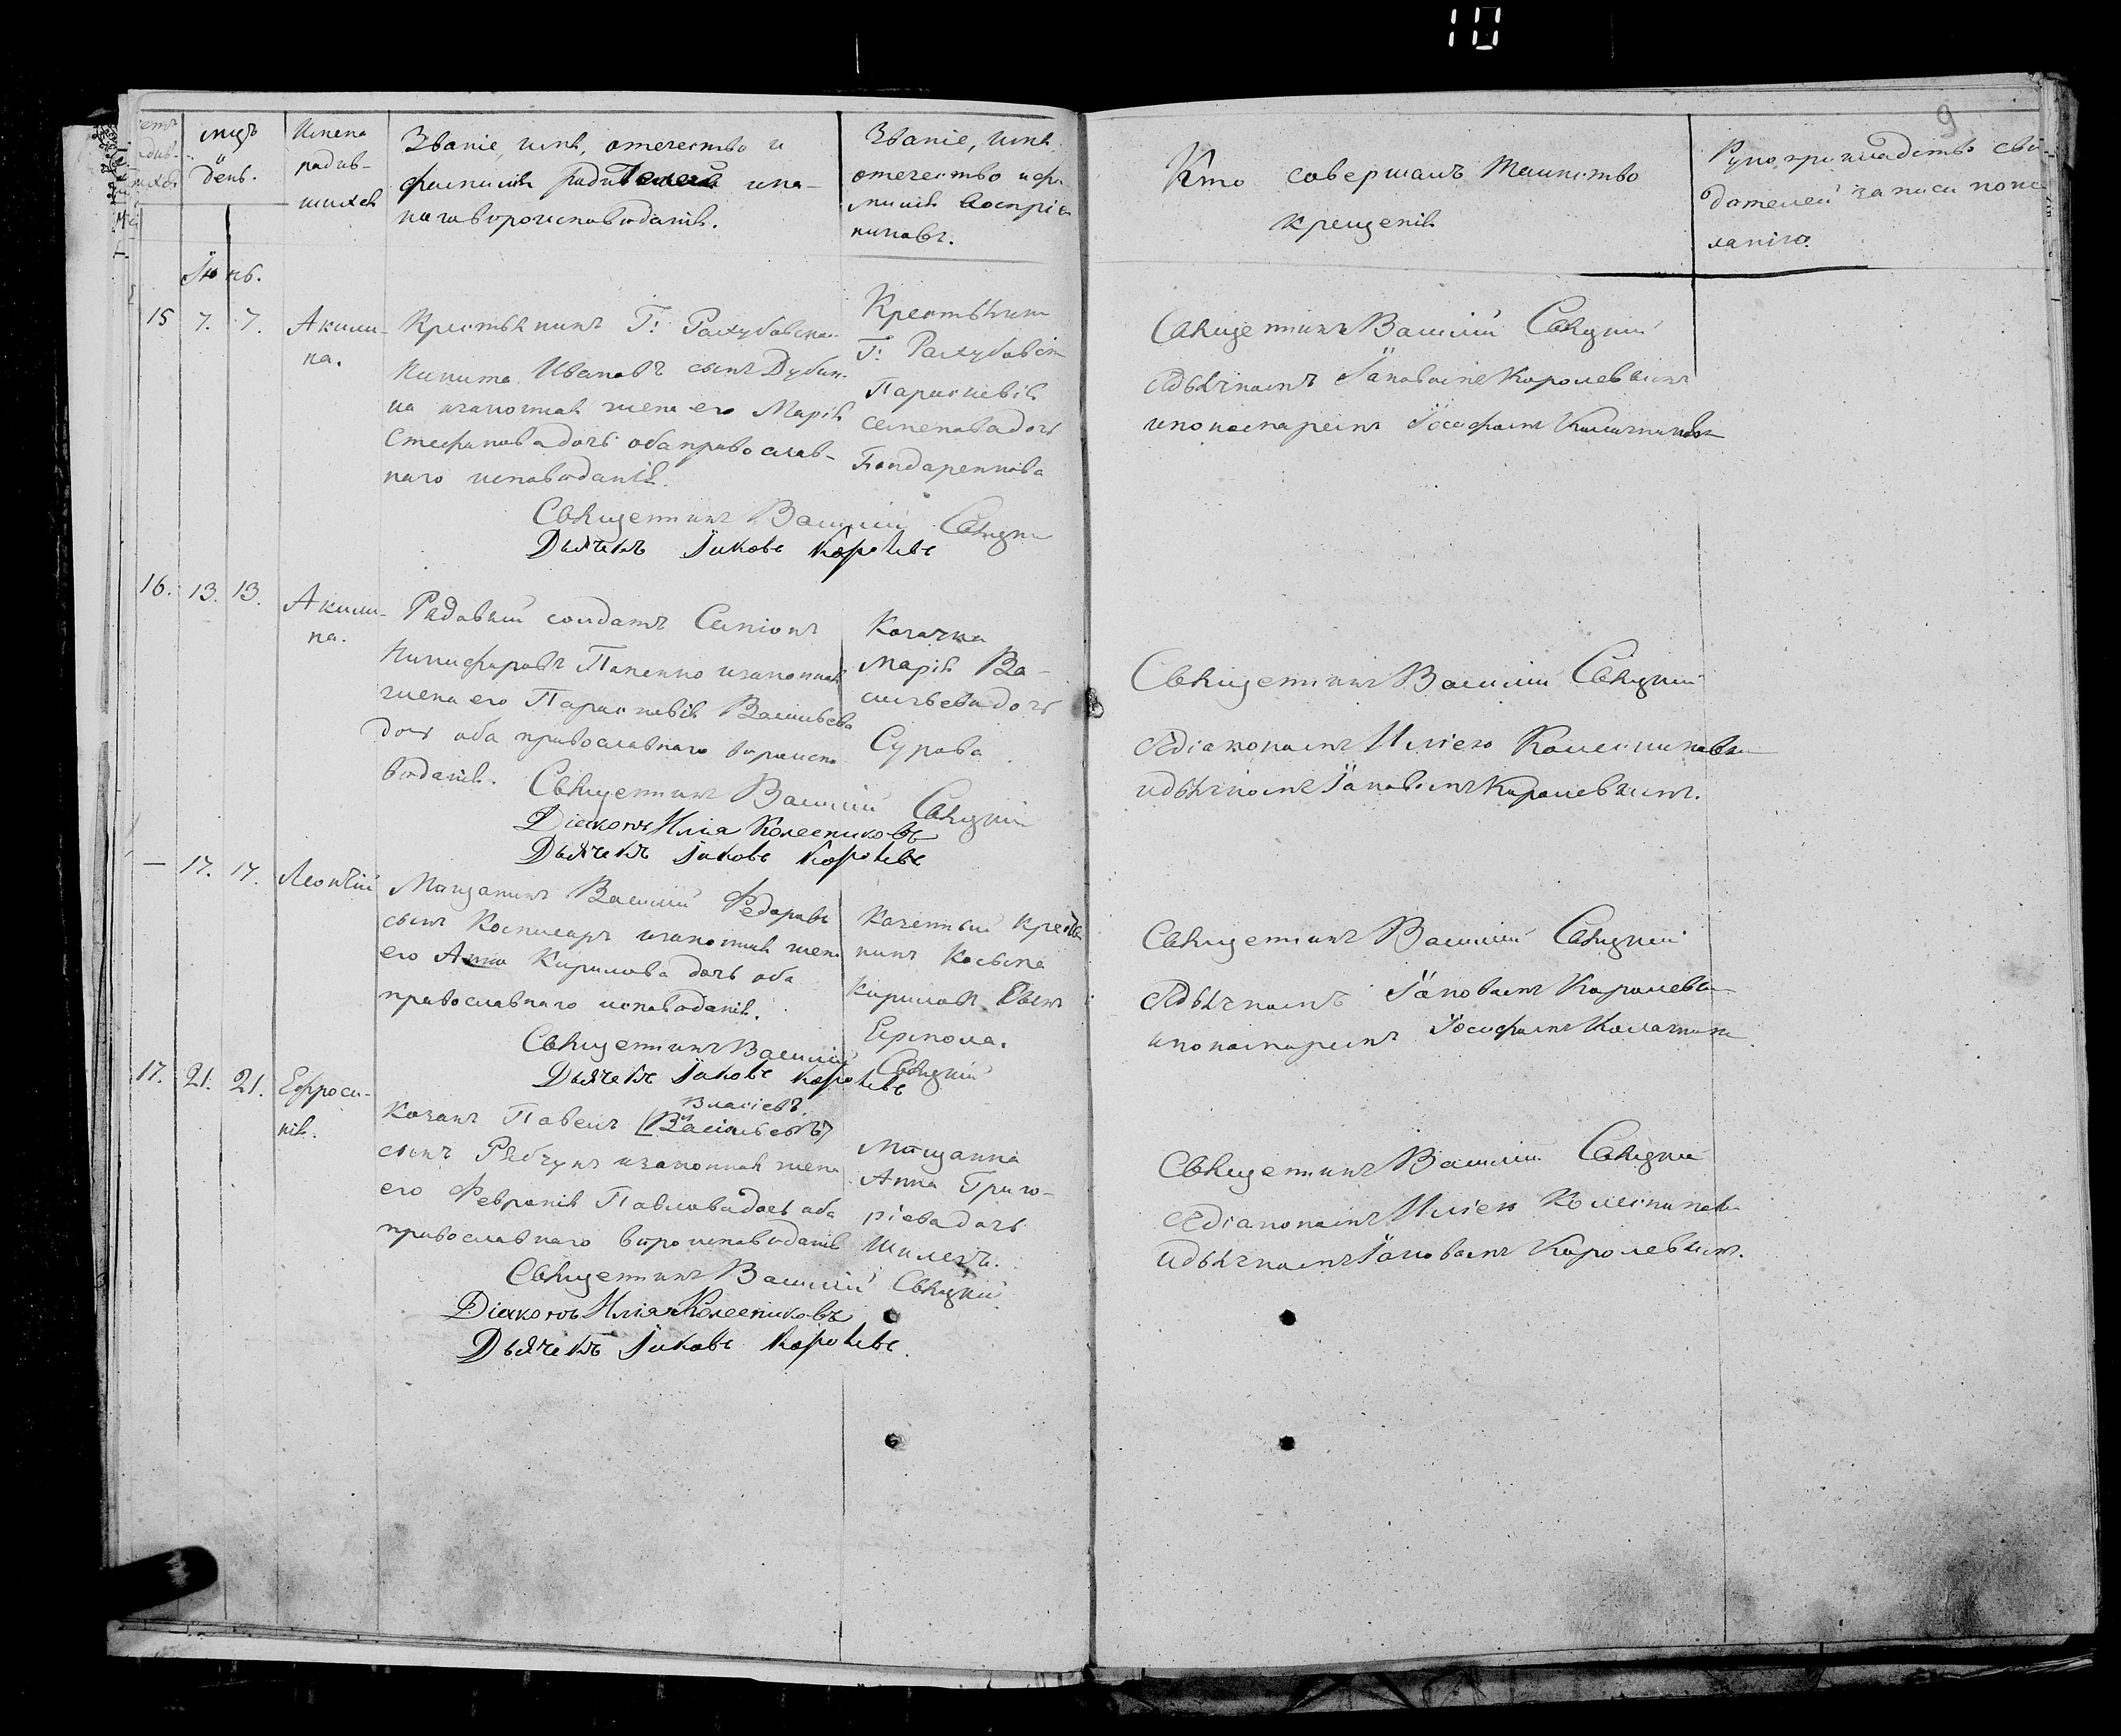 10
9
мцъ
и
день.
Имена
родив-
шихся
Званіе, имя, отечество и
фамилія родителей и ка-
кого вероисповѣданія.
Званіе, имя,
отечество и фа-
милія воспріем
никовъ.
Кто совершалъ таинство
крещенія
Рукоприкладство сви
дѣтелей записи по же
ланію.
Іюнь.
15
7.
7.
Акили-
на.
Крестьянинъ Г:
Никита Ивановъ сынъ Дубин-
ка и законная жена его Марія
Стефанова дочь оба православ-
наго исповѣданія.
Священникъ Василій Свяцкій
Дьячекъ Іаковъ Королевъ
Крестьянин
Г:
Параскевія
Семенова дочь
Бондаренкова
Священникъ Василій Свяцкій
съ дьячкомъ Іаковомъ Королевымъ
и пономаремъ Іосифомъ
16.
13.
13.
Акили-
на.
Рядовый солдатъ Семіонъ
Никифоровъ Паненко и законная
жена его Параскевія Васильева
дочь оба православнаго вероиспо
вѣданія.
Священникъ Василій Свяцкій
Діаконъ Илія Колесниковъ
Дьячекъ Іаковъ Королевъ
Козачка
Марія Ва-
сильева дочь
Сурова
Священникъ Василій Свяцкій
съ діакономъ Иліею Колесниковым
и дьячкомъ Іаковомъ Королевымъ.
—
17.
17.
Леонтій
Мѣщанинъ Василій Федоровъ
сынъ и законная жена
его Анна Кирилова дочь оба
православнаго исповѣданія.
Священникъ Василій Свяцкій
Дьячекъ Іаковъ Королевъ
Казенный крестья
нинъ Косьма
Кириловъ сынъ
Ермола.
Священникъ Василій Свяцкій
съ дьячкомъ Іаковомъ Королевым
и пономаремъ Іосифомъ
17.
21.
21.
Ефроси-
нія.
Власіевъ
Козакъ Павелъ [Васильевъ]
сынъ Рябчунъ и законная жена
его Февронія Павлова дочь оба
православнаго вероисповѣданія
Священникъ Василій Свяцкій
Діаконъ Илія Колесниковъ
Дьячекъ Іаковъ Королевъ.
Мѣщанка
Анна Григо-
ріева дочь
Шилехъ.
Священникъ Василій Свяцкій
съ діакономъ Иліею Колесниковым
и дьячкомъ Іаковомъ Королевымъ.